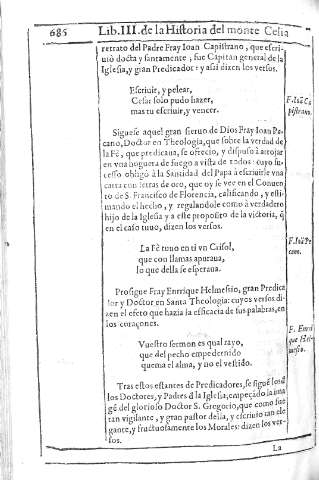 685 Lib.III. de la Historia del monte Celia
retrato del Padre Fray Ioan Capistrano, que escri-
uió docta y santamente; fue Capitan general de la
Iglesia, y gran Predicador: y assi dizen los versos.
Escriuir, y pelear,
Cesar solo pudo hazer,
mas tu escriuir, y vencer.
F. Iuã Ca
pistrano.
Siguese aquel gran sieruo de Dios Fray Ioan Pe-
cano, Doctor en Theologia, que sobre la verdad de
la Fè, que predicaua, se ofrecio, y dispuso à arrojar
en vna hoguera de fuego a vista de todos: cuyo su-
cesso obligó à la Santidad del Papa à escriuirle vna
carta con letras de oro, que oy se vee en el Conuen
to de S. Francisco de Florencia, calificando, y esti-
mando el hecho, y regalandole como à verdadero
hijo de la Iglesia y a este proposito de la victoria, q̃
en el caso tuuo, dizen los versos.
La Fè tuuo en ti vn Crisol,
que con llamas apuraua,
lo que della se esperaua.
F. Iuã Pe
cano.
Prosigue Fray Enrrique Helmesiio, gran Predica
dor y Doctor en Santa Theologia: cuyos versos di-
zen el efeto que hazia la efficacia de sus palabras, en
los coraçones.
Vuestro sermon es qual rayo,
que del pecho empedernido
quema el alma, y no el vestido.
F. Enrri
que Hel-
mesio.
Tras estos estantes de Predicadores, se siguẽ los d̃
los Doctores, y Padres d̃ la Iglesia, empeçãdo la ima
gẽ del glorioso Doctor S. Gregorio, que como fue
tan vigilante, y gran pastor della, y escriuio tan ele
gante, y fructuosamente los Morales: dizen los ver-
sos.
La